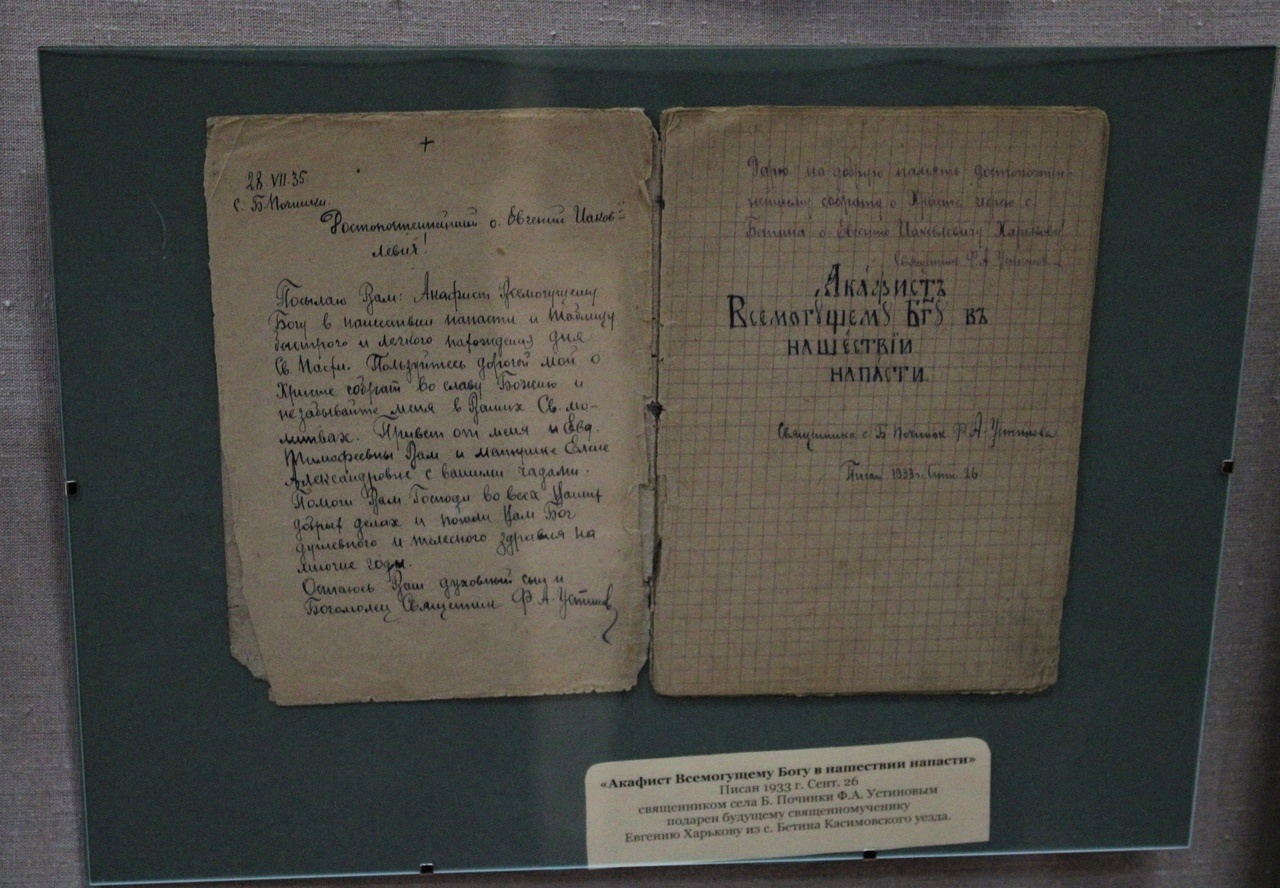 +
28.VII.35
с. Б. Починки.
Достопочтеннейший о. Евгений Иаков-
левич!
Посылаю Вам: Акафист Всемогущему
Богу в нашествии напасти и таблицу
быстрого и легкого нахождения дня
Св. Пасхи. Пользуйтесь дорогой мой о
Христе собрат во славу Божию и
незабывайте меня в Ваших Св. мо-
литвах. Привет от меня и Евд.
Тимофеевны Вам и матушке Елене
Александровне с вашими чадами.
Помоги Вам Господи во всех Ваших
добрых делах и пошли Вам Бог
душевного и телесного здравия на
многие годы.
Остаюсь Ваш духовный сын и
Богомолец Священник Ф. А. Устинов
Дарю на добрую память достопочтен-
нейшему собрату о Христе иерею с.
Бетина о Евгению Иаковлевичу Харькову
Священник Ф А Устинов
Акафистъ
Всемогущему Бгу въ
нашествіи
напасти.
Священника с. Б. Починок Ф. А. Устинова
Писан 1933 г. Сент. 26
«Акафист Всемогущему Богу в нашествии напасти»
Писан 1933 г. Сент. 26
священником села Б. Починки Ф.А. Устиновым
подарен будущему священномученику
Евгению Харькову из с. Бетина Касимовского уезда.